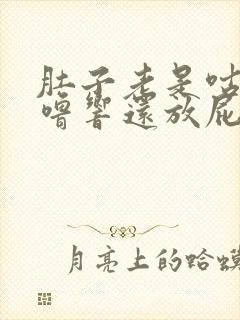 肚子老是咕
嚕響還放屁
月亮上的蛤蟆